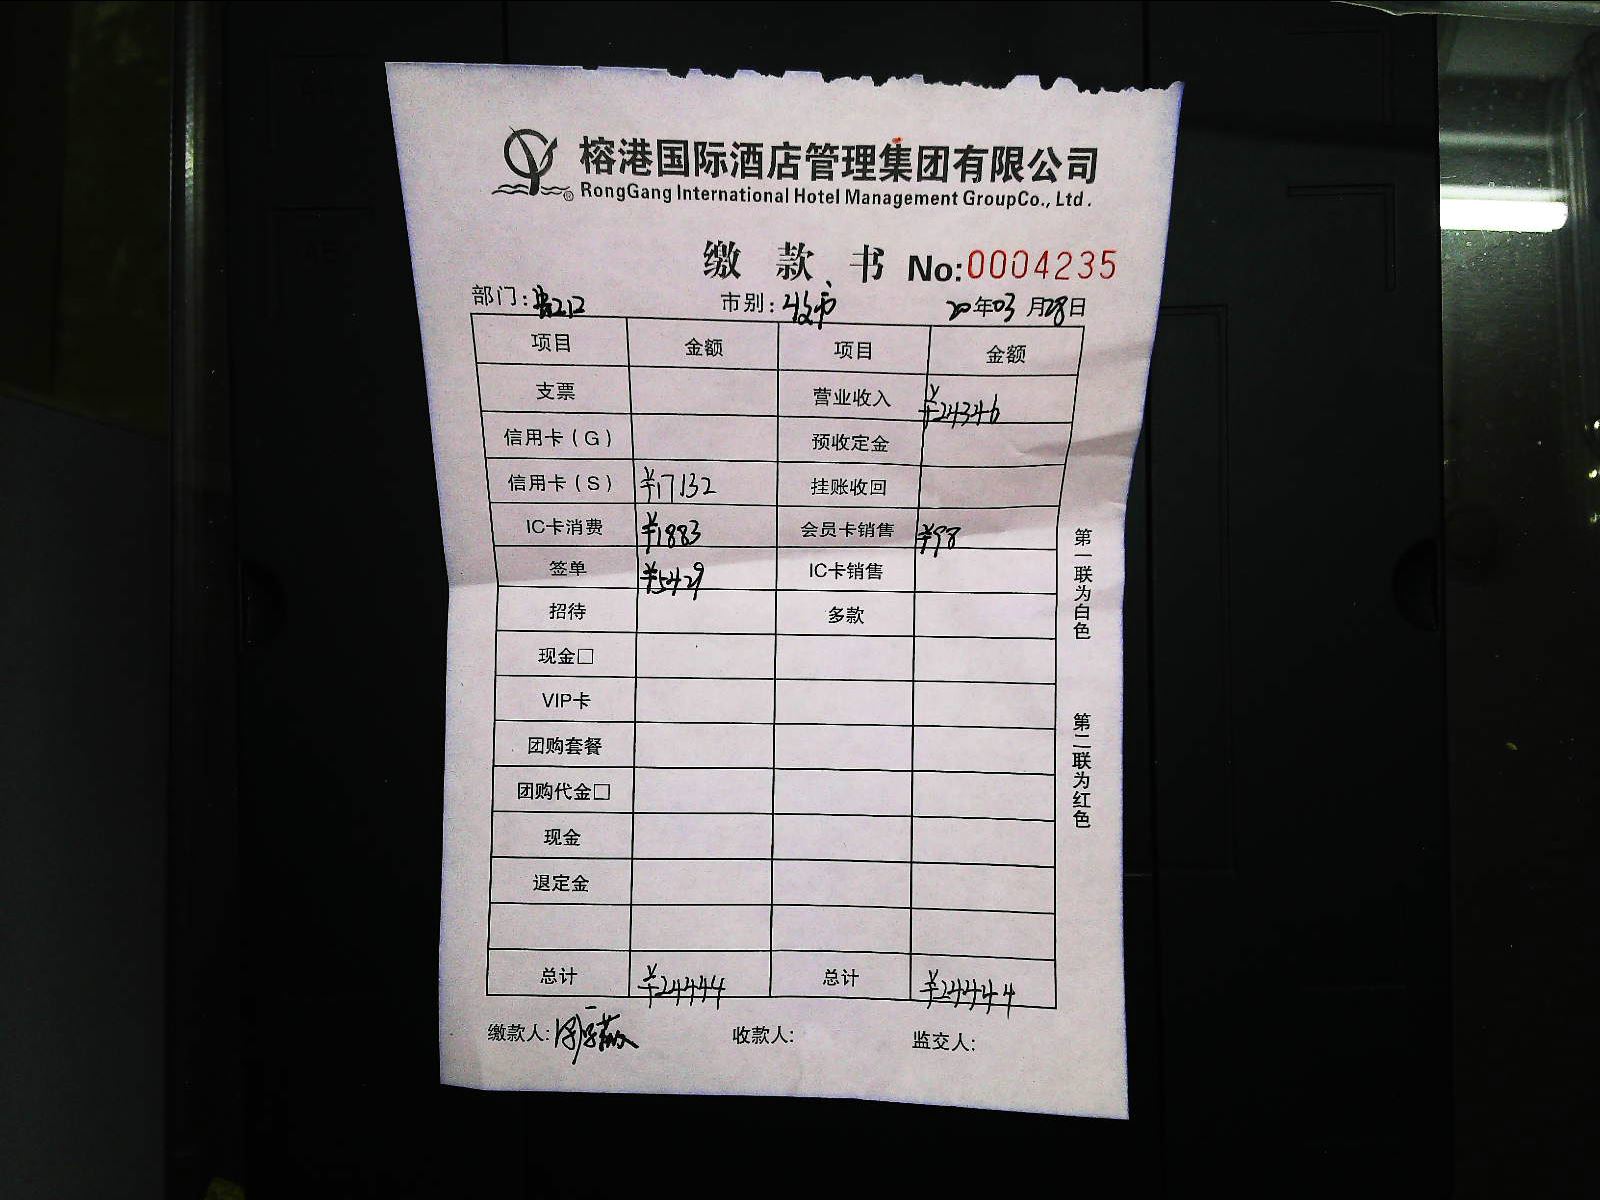 榕港国际酒店管理集团有限公司
RongGang International Hotel Management GroupCo., Ltd.
缴 款 书 No:0004235
部门: 市别: 收市 20年03月28日
项目 金额 项目 金额
支票 营业收入 ¥24346
信用卡(G) 预收定金
信用卡(S) ¥17132 挂账收回
IC卡消费 ¥1883 会员卡销售 ¥98
签单 ¥5429 IC卡销售
招待 多款
现金□
VIP卡
团购套餐
团购代金□
现金
退定金
总计 ¥24444 总计 ¥24444
缴款人: 收款人: 监交人:
第一联为白色
第二联为红色